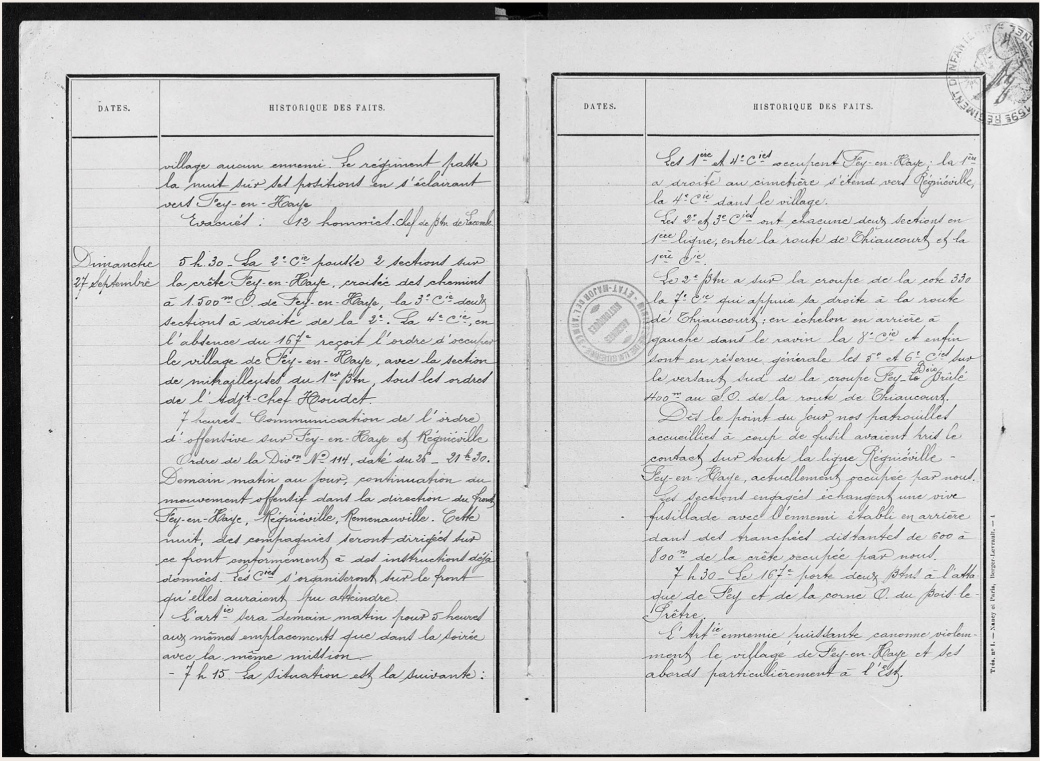 DATES.
HISTORIQUE DES FAITS.
village aucun ennemi. Le régiment passe
la nuit sur ses positions en s'éclairant
vers Fey-en-Haye
Evacués : 12 hommes. chef de Btn de Lacomb
Dimanche
27 Septembre
5 h. 30 - La 2e Cie pousse 2 sections sur
la crête Fey-en-Haye, croisée des chemins
à 1.500m O. de Fey-en-Haye, la 3e Cie deux
sections à droite de la 2e. La 4e Cie, en
l'absence du 167e reçoit l'ordre d'occuper
le village de Fey-en-Haye, avec la section
de mitrailleuses du 1er Btn, sous les ordres
de l'Adjt-Chef Houdet.
7 heures - Communication de l'ordre
d'offensive sur Fey-en-Haye et Régniéville
Ordre de la Divon No 114, daté du 26 - 21h30.
Demain matin au jour, continuation du
mouvement offensif dans la direction du front
Fey-en-Haye, Régniéville, Remenauville. Cette
nuit, des compagnies seront dirigées sur
ce front conformément à des instructions déjà
données. Les Cies s'organiseront sur le front
qu'elles auraient pu atteindre.
L'artie sera demain matin pour 5 heures
aux mêmes emplacements que dans la soirée
avec la même mission
- 7 h 15 - La situation est la suivante :
DATES.
HISTORIQUE DES FAITS.
Les 1ère et 4e Cies occupent Fey-en-Haye ; la 1ère
à droite au cimetière s'étend vers Régniéville,
la 4e Cie dans le village.
Les 2e et 3e Cies ont chacune deux sections en
1ère ligne, entre la route de Thiaucourt et la
1ère Cie.
Le 2e Btn a sur la croupe de la cote 330
la 7e Cie qui appuie sa droite à la route
de Thiaucourt ; en échelon en arrière à
gauche dans le ravin la 8e Cie et enfin
sont en réserve générale les 5e et 6e Cies sur
le versant sud de la croupe Fey - le Bois Brûlé
400m au S.O. de la route de Thiaucourt.
Dès le point du jour nos patrouilles
accueillies à coup de fusil avaient pris le
contact sur toute la ligne Régniéville -
Fey-en-Haye, actuellement occupée par nous.
Les sections engagées échangent une vive
fusillade avec l'ennemi établi en arrière
dans des tranchées distantes de 600 à
800m de la crête occupée par nous.
7 h 30 - Le 167e porte deux Btns à l'atta
que de Fey et de la corne O. du Bois le-
Prêtre.
L'Artie ennemie puissante canonne violem-
ment le village de Fey-en-Haye et ses
abords particulièrement à l'Est.
169e RÉGIMENT D'INFANTERIE
ÉTAT-MAJOR DE L'ARMÉE
ARCHIVES
HISTORIQUES
Nancy et Paris, Berger-Levrault. — 4